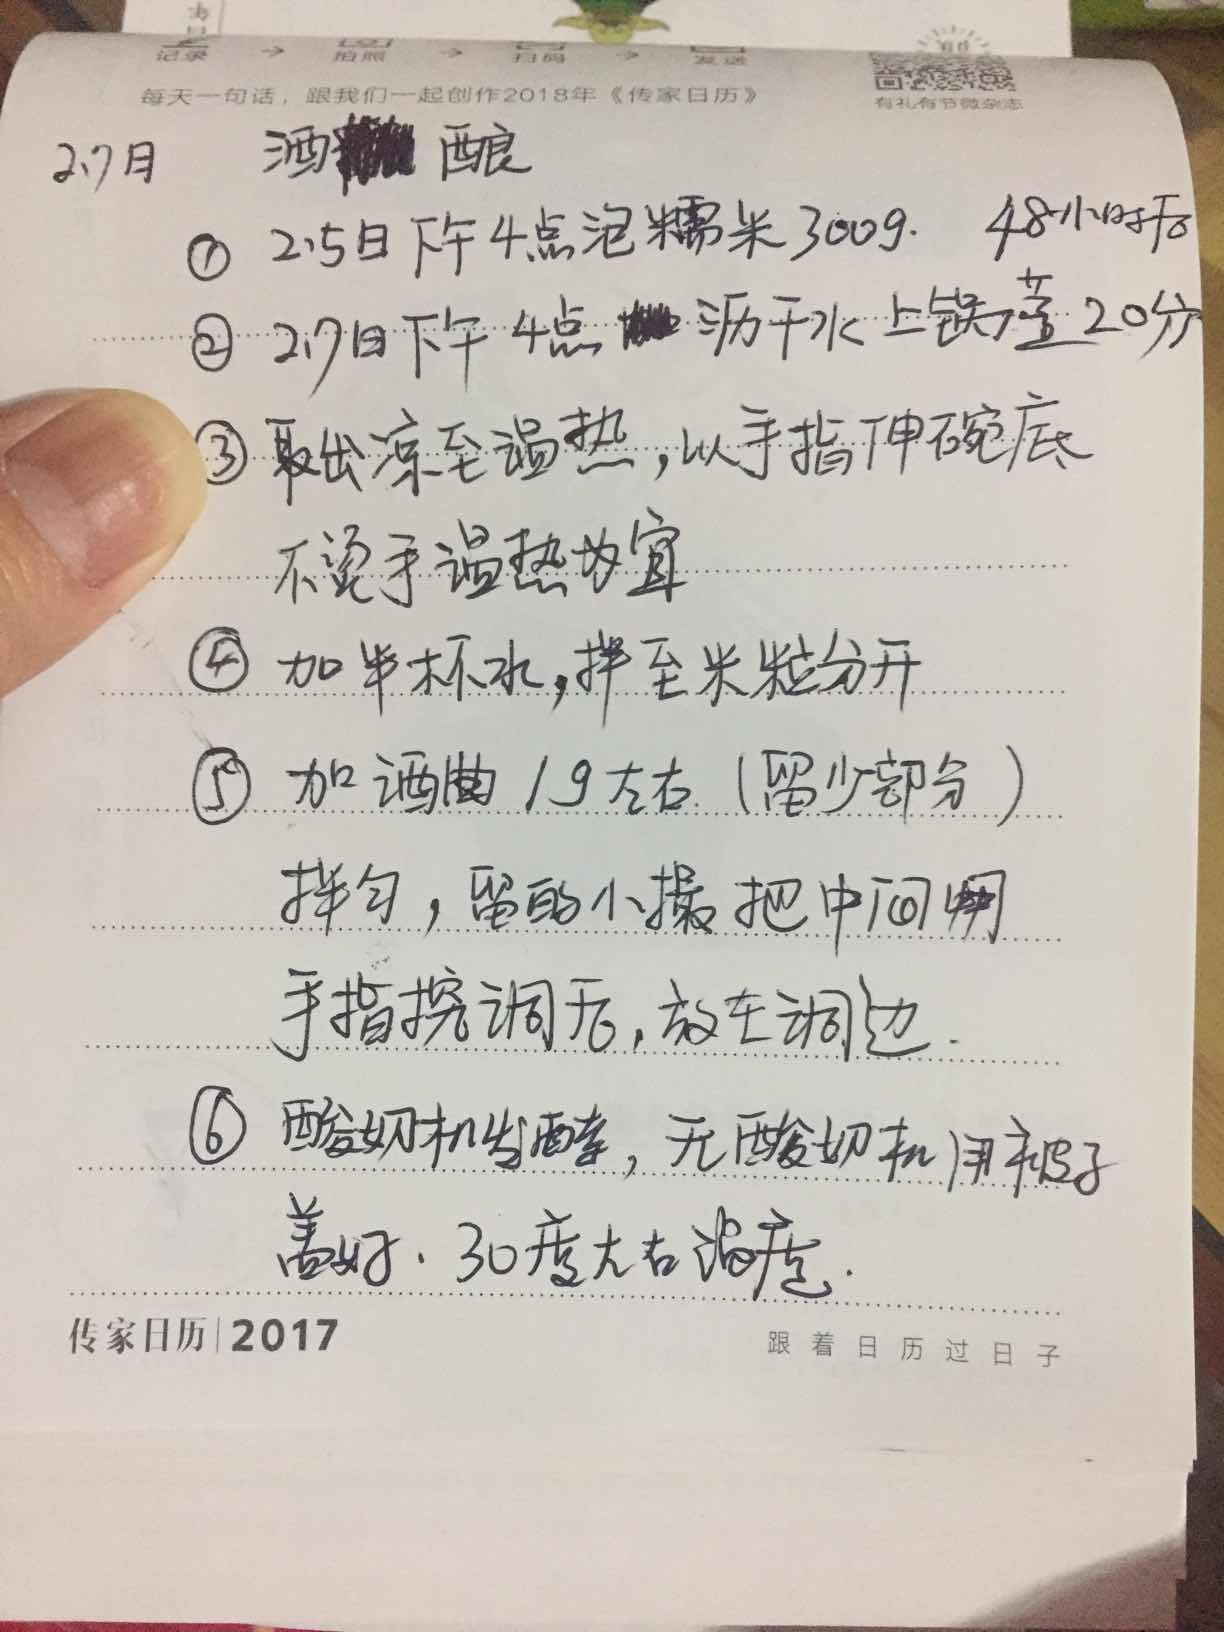 记录 → 拍照 → 扫码 → 发送
每天一句话，跟我们一起创作2018年《传家日历》
有礼有节微杂志
2.7月 酒酿
① 2.5日下午4点泡糯米300g. 48小时后
② 2.7日下午4点 沥干水上锅蒸20分
③ 取出凉至温热，以手指伸碗底
不烫手温热为宜
④ 加半杯水，拌至米粒分开
⑤ 加酒曲1g左右（留少部分）
拌匀，留的小撮把中间用
手指挖洞后，放在洞边.
⑥ 酸奶机发酵，无酸奶机用被子
盖好. 30度左右温度.
传家日历|2017
跟着日历过日子